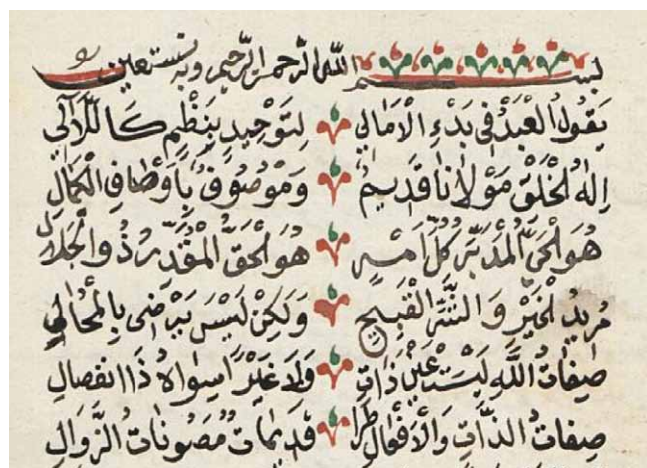 بسم الله الرحمن الرحيم وبه نستعين
يَقُولُ الْعَبْدُ فِي بَدْءِ الْاَمَالِي لِتَوْحِيدٍ بِنَظْمٍ كَاللَّاٰلِي
اِلٰهُ الْخَلْقِ مَوْلَانَا قَدِيمٌ وَمَوْصُوفٌ بِاَوْصَافِ الْكَمَالِ
هُوَ الْحَيُّ الْمُدَبِّرُ كُلَّ اَمْرٍ هُوَ الْحَقُّ الْمُقَدِّرُ ذُو الْجَلَالِ
مُرِيدُ الْخَيْرِ وَالشَّرِّ الْقَبِيحِ وَلَكِنْ لَيْسَ يَرْضَى بِالْمُحَالِ
صِفَاتُ اللَّهِ لَيْسَتْ عَيْنَ ذَاتٍ وَلَا غَيْرًا سِوَاهُ ذَا انْفِصَالِ
صِفَاتُ الذَّاتِ وَالْاَفْعَالِ طُرًّا قَدِيمَاتٌ مَصُونَاتُ الزَّوَالِ